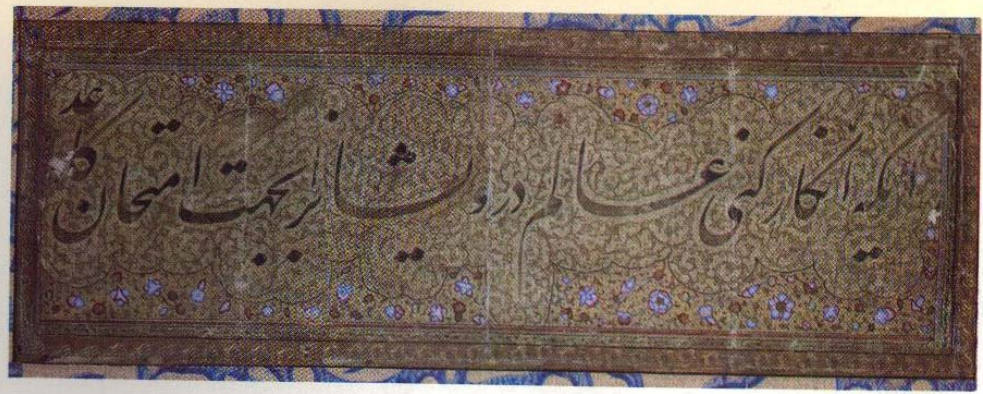 ایکه انکار کنی عالم درویشانرا بجهت امتحان